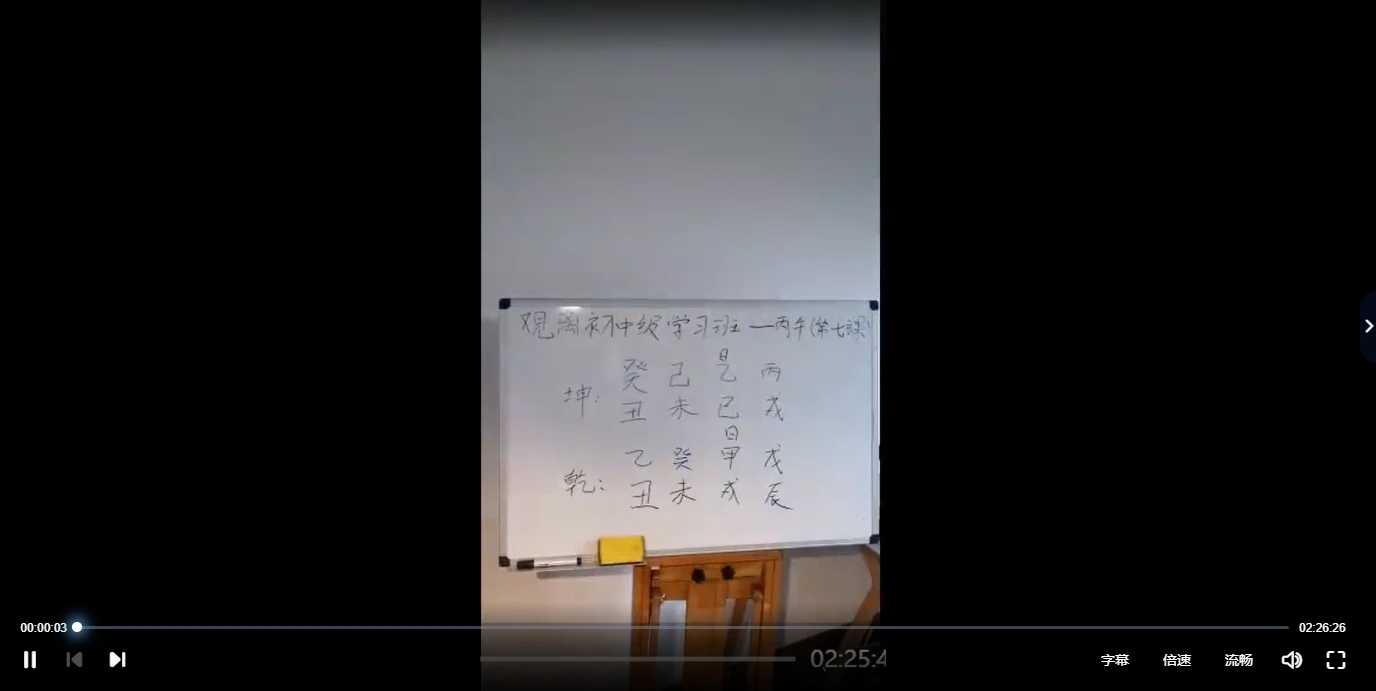 观离初中级学习班—丙午(第七课)
日
癸 己 乙 丙
坤:
丑 未 巳 戌
日
乙 癸 甲 戊
乾:
丑 未 戌 辰
02:25:4
00:00:03 02:26:26
字幕 倍速 流畅